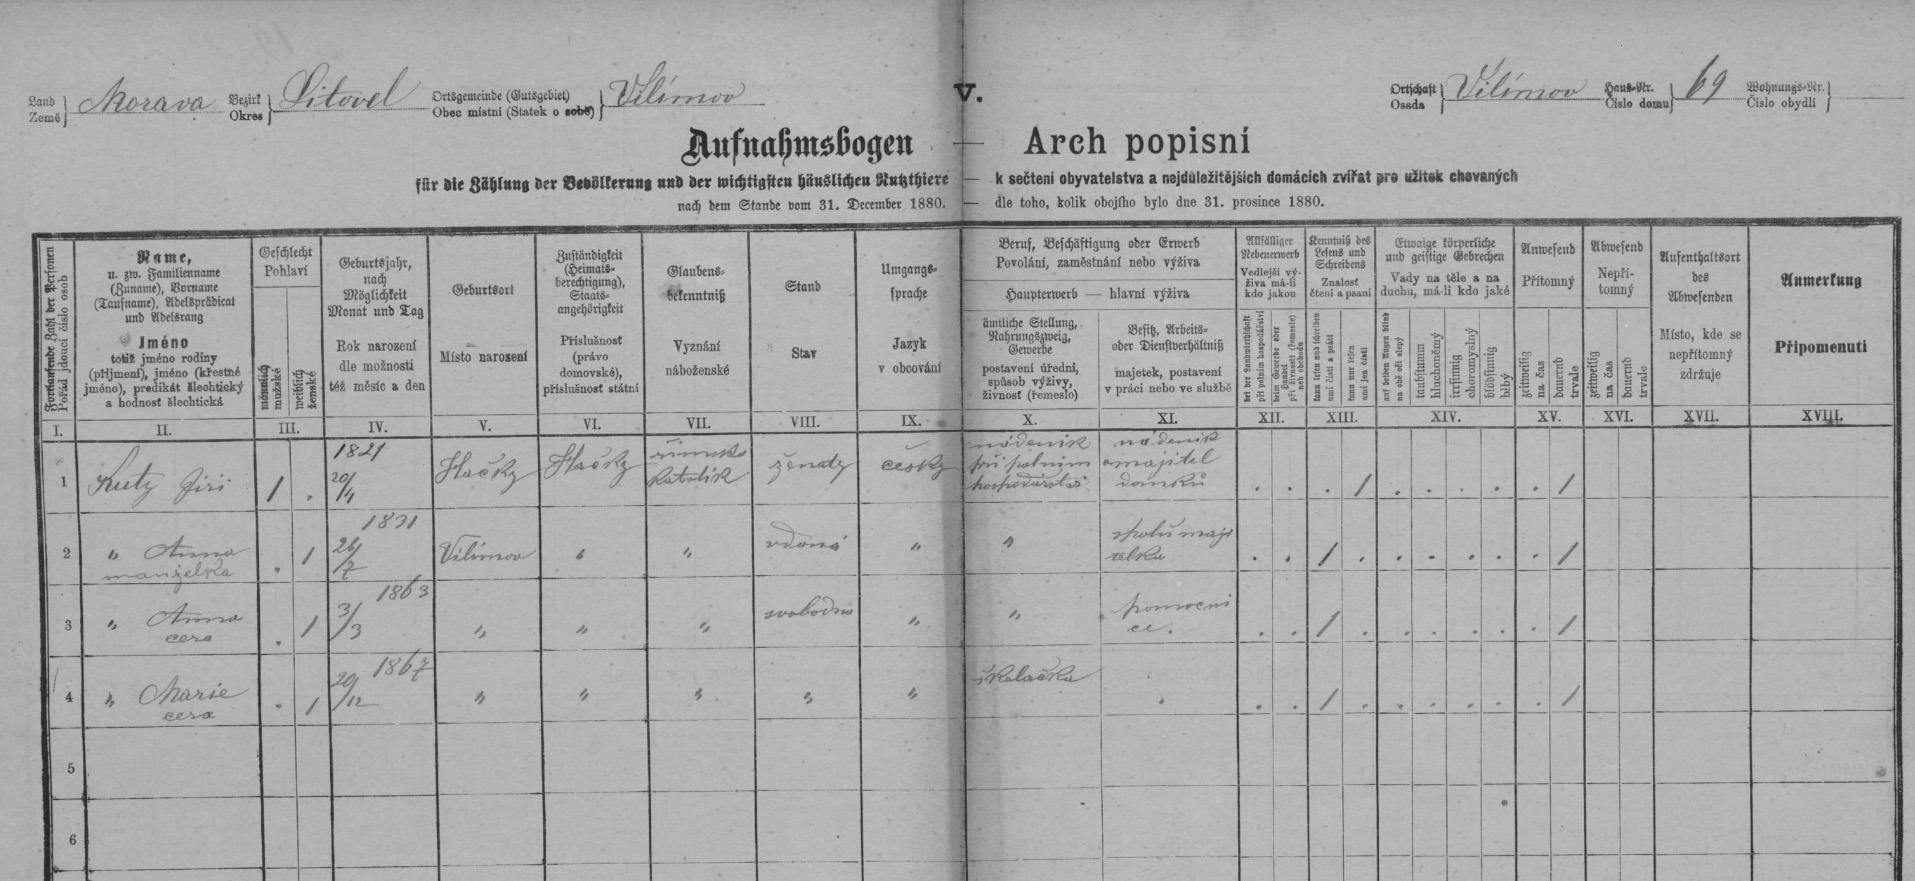 Land
Země
Morava
Bezirk
Okres
Litovel
Ortsgemeinde (Gutsgebiet)
Obec místní (Statek o sobě)
Vilímov
V.
Ortschaft
Osada
Vilímov
Haus-Nr.
Číslo domu
69
Wohnungs-Nr.
Číslo obydlí
Aufnahmsbogen — Arch popisní
für die Zählung der Bevölkerung und der wichtigsten häuslichen Nutzthiere — k sečtení obyvatelstva a nejdůležitějších domácích zvířat pro užitek chovaných
nach dem Stande vom 31. December 1880. — dle toho, kolik obojího bylo dne 31. prosince 1880.
Fortlaufende Zahl der Personen
Pořád jdoucí číslo osob
Name,
u. zw. Familienname
(Zuname), Vorname
(Taufname), Adelsprädicat
und Adelsrang
Jméno
totiž jméno rodiny
(příjmení), jméno (křestné
jméno), predikát šlechtický
a hodnost šlechtická
Geschlecht
Pohlaví
männlich
mužské
weiblich
ženské
Geburtsjahr,
nach
Möglichkeit
Monat und Tag
Rok narození
dle možnosti
též měsíc a den
Geburtsort
Místo narození
Zuständigkeit
(Heimats-
berechtigung),
Staats-
angehörigkeit
Příslušnost
(právo
domovské),
příslušnost státní
Glaubens-
bekenntniß
Vyznání
náboženské
Stand
Stav
Umgangs-
sprache
Jazyk
v obcování
Beruf, Beschäftigung oder Erwerb
Povolání, zaměstnání nebo výživa
Haupterwerb — hlavní výživa
ämtliche Stellung,
Nahrungszweig,
Gewerbe
postavení úřední,
spůsob výživy,
živnost (řemeslo)
Besitz, Arbeits-
oder Dienstverhältniß
majetek, postavení
v práci nebo ve službě
Allfälliger
Nebenerwerb
Vedlejší vý-
živa má-li
kdo jakou
bei der Landwirthschaft
při polním hospodářství
beim Gewerbe oder
Handel
při živnosti (řemesle)
neb obchodu
Kenntniß des
Lesens und
Schreibens
Znalost
čtení a psaní
kann lesen und schreiben
umí čísti a psáti
kann nur lesen
umí jen čísti
Etwaige körperliche
und geistige Gebrechen
Vady na těle a na
duchu, má-li kdo jaké
auf beiden Augen blind
na obě oči slepý
taubstumm
hluchoněmý
irrsinnig
choromyslný
blödsinnig
blbý
Anwesend
Přítomný
zeitweilig
na čas
dauernd
trvale
Abwesend
Nepří-
tomný
zeitweilig
na čas
dauernd
trvale
Aufenthaltsort
des
Abwesenden
Místo, kde se
nepřítomný
zdržuje
Anmerkung
Připomenutí
I. II. III. IV. V. VI. VII. VIII. IX. X. XI. XII. XIII. XIV. XV. XVI. XVII. XVIII.
1
Kutý Jiří
1
.
1821
20/4
Hačky
Hačky
římsko
katolík
ženatý
český
nádeník
při polním
hospodářství
nádeník
a majitel
domků
. . . 1 . . . . . 1
2
" Anna
manželka
. 1
1831
26/7
Vilímov
"
"
vdaná
"
"
spolumaji
telka
. . 1 . . . . . . 1
3
" Anna
cera
. 1
1863
3/3
"
"
"
svobodna
"
"
pomocni
ce.
. . 1 . . . . . . 1
4
" Marie
cera
. 1
1867
20/12
"
"
"
"
"
školačka
.
. . 1 . . . . . . 1
5
6